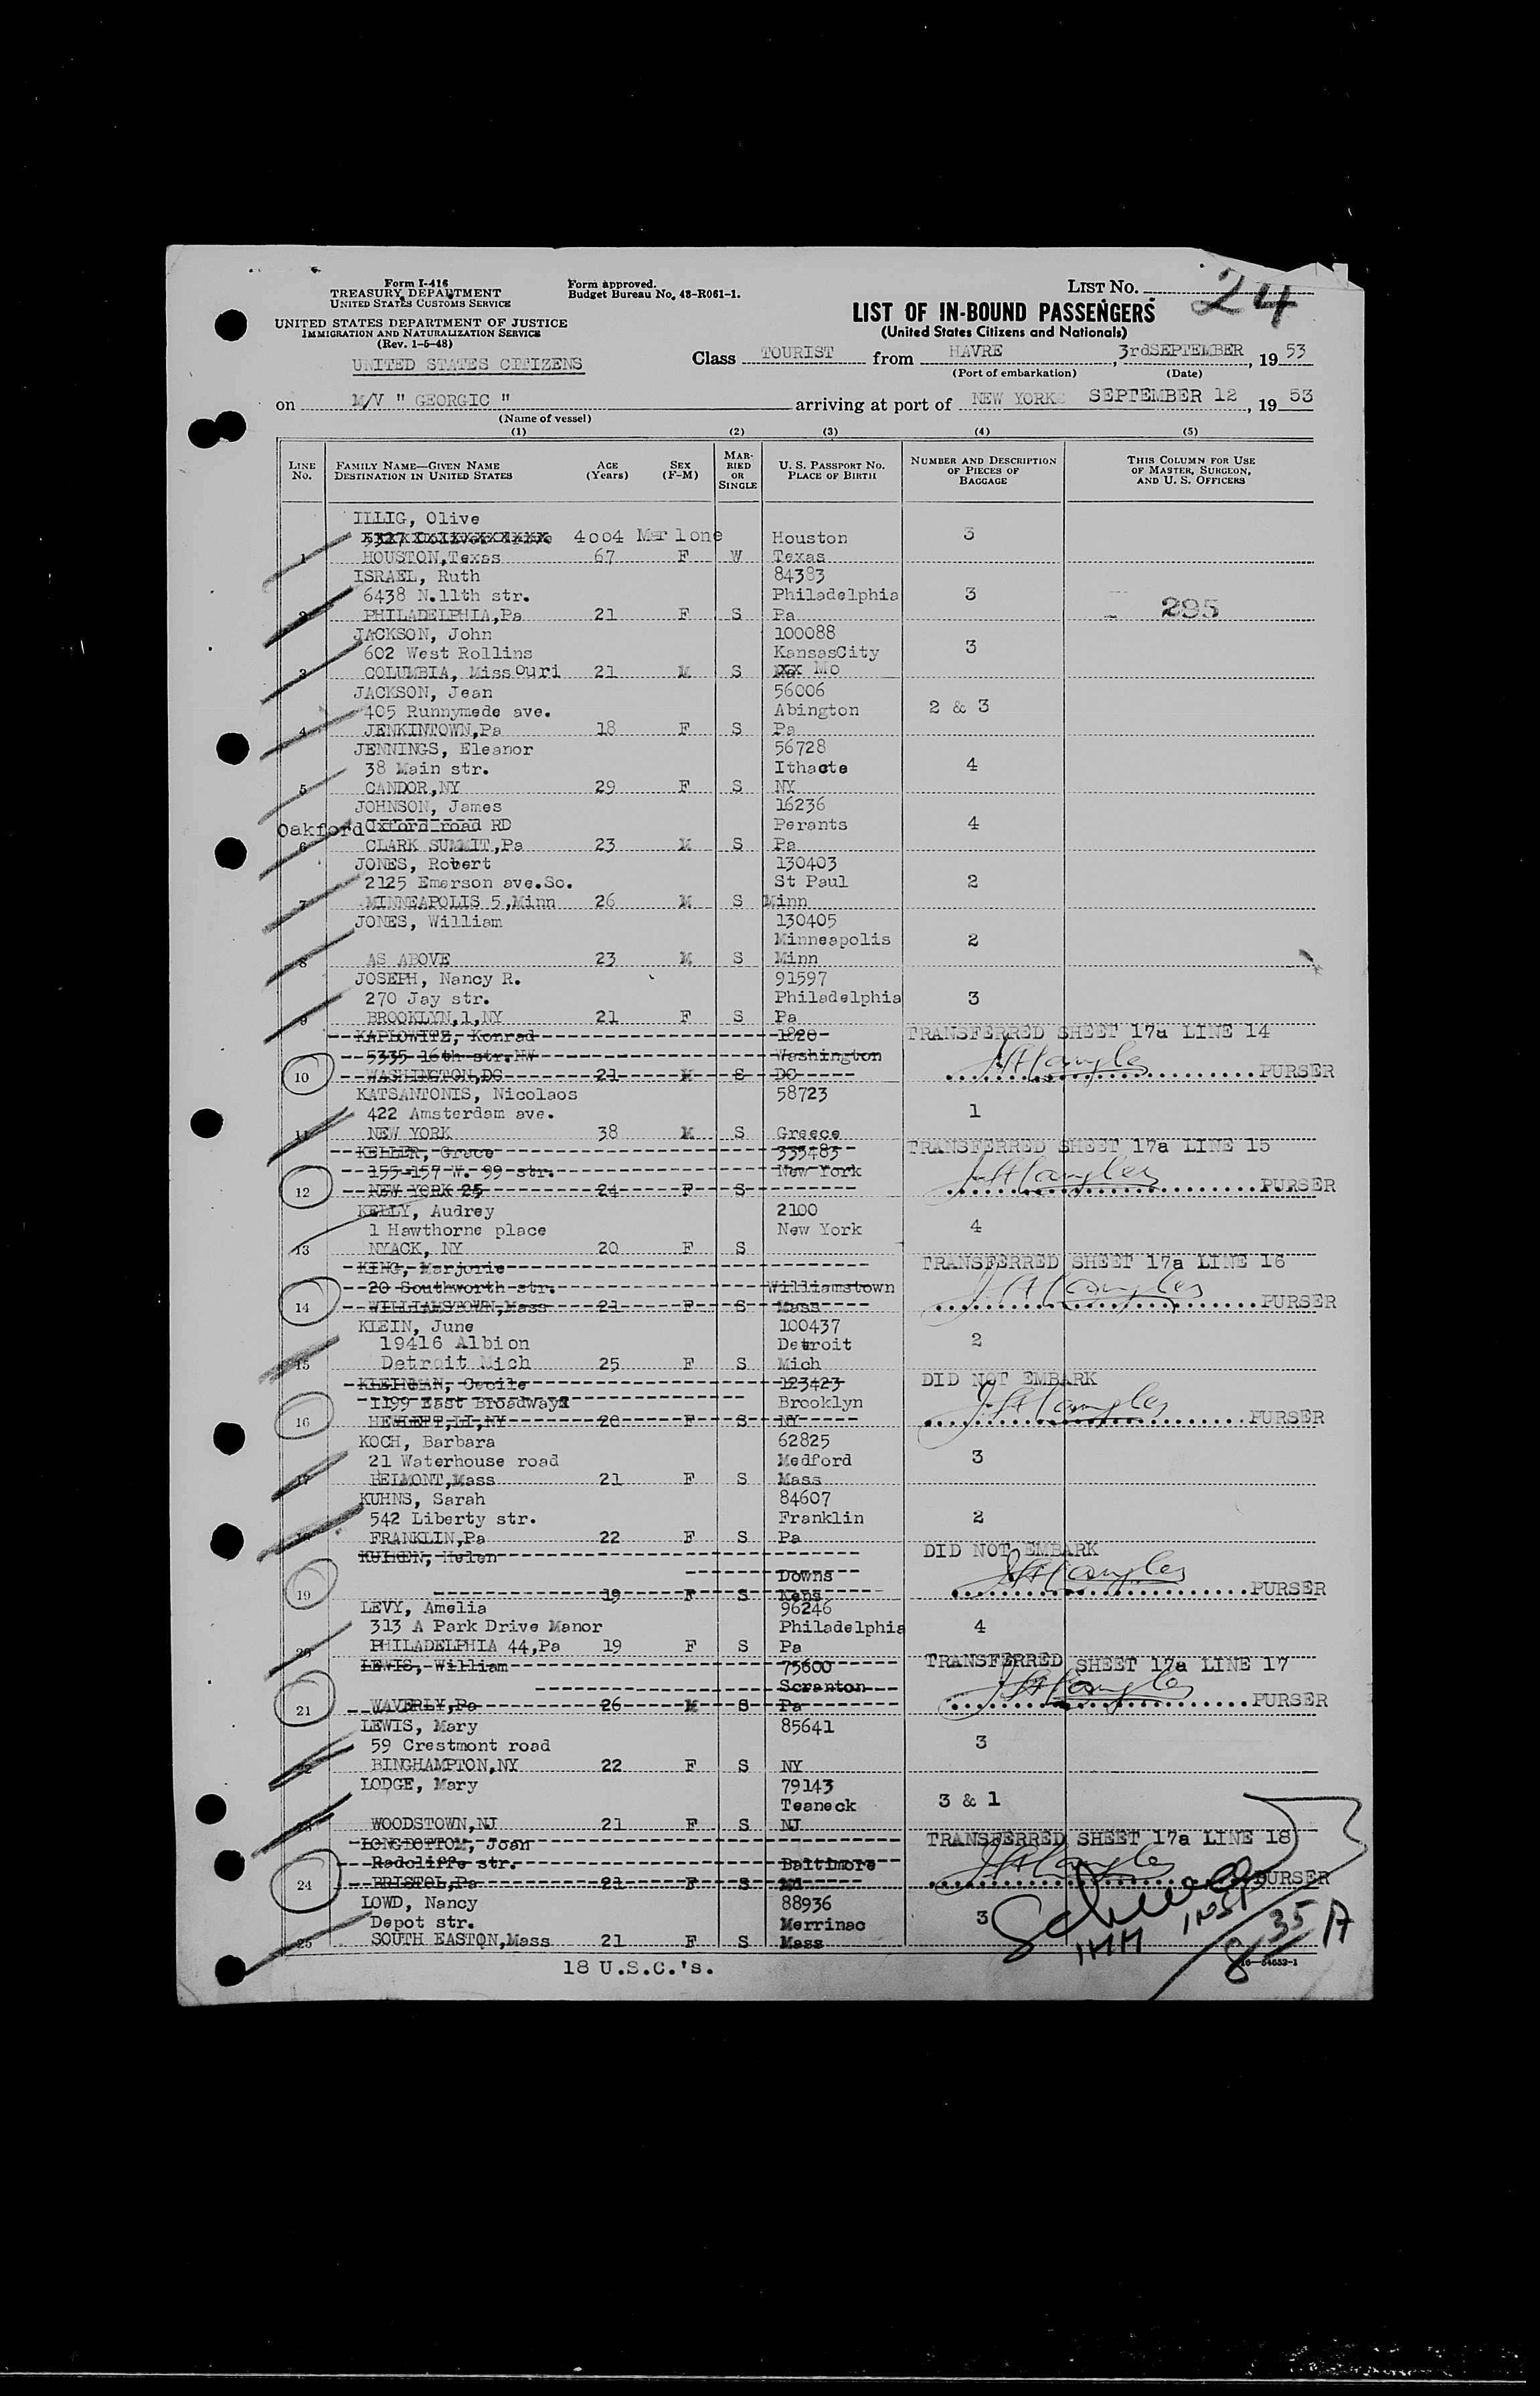 Form I-416
TREASURY DEPARTMENT
UNITED STATES CUSTOMS SERVICE
UNITED STATES DEPARTMENT OF JUSTICE
IMMIGRATION AND NATURALIZATION SERVICE
(Rev. 1-5-48)
UNITED STATES CITIZENS
Form approved.
Budget Bureau No. 43-R061-1.
LIST No. 24
LIST OF IN-BOUND PASSENGERS
(United States Citizens and Nationals)
Class TOURIST from HAVRE, 3rdSEPTEMBER, 19 53
(Port of embarkation) (Date)
on M/V " GEORGIC " arriving at port of NEW YORK SEPTEMBER 12, 19 53
(Name of vessel)
(1) (2) (3) (4) (5)
LINE No. FAMILY NAME—GIVEN NAME DESTINATION IN UNITED STATES AGE (Years) SEX (F-M) MARRIED OR SINGLE U. S. PASSPORT NO. PLACE OF BIRTH NUMBER AND DESCRIPTION OF PIECES OF BAGGAGE THIS COLUMN FOR USE OF MASTER, SURGEON, AND U. S. OFFICERS
ILLIG, Olive
4004 Marlone Houston 3
1 HOUSTON,Texas 67 F W Texas
ISRAEL, Ruth 84383
6438 N.11th str. Philadelphia 3
2 PHILADELPHIA,Pa 21 F S Pa 295
JACKSON, John 100088
602 West Rollins KansasCity 3
3 COLUMBIA, Missouri 21 M S Mo
JACKSON, Jean 56006
405 Runnymede ave. Abington 2 & 3
4 JENKINTOWN,Pa 18 F S Pa
JENNINGS, Eleanor 56728
38 Main str. Ithacte 4
5 CANDOR,NY 29 F S NY
JOHNSON, James 16236
Oakford Oxford road RD Perants 4
6 CLARK SUMMIT,Pa 23 M S Pa
JONES, Robert 130403
2125 Emerson ave.So. St Paul 2
7 MINNEAPOLIS 5,Minn 26 M S Minn
JONES, William 130405
Minneapolis 2
8 AS ABOVE 23 M S Minn
JOSEPH, Nancy R. 91597
270 Jay str. Philadelphia 3
9 BROOKLYN,1,NY 21 F S Pa
KAPLOWITZ, Konrad 1820 TRANSFERRED SHEET 17a LINE 14
5335 16th str.NW Washington
10 WASHINGTON,DC 21 M S DC PURSER
KATSANTONIS, Nicolaos 58723
422 Amsterdam ave. 1
11 NEW YORK 38 M S Greece
KELLER, Grace 335483 TRANSFERRED SHEET 17a LINE 15
155-157 W. 99 str. New York
12 NEW YORK 25 24 F S PURSER
KELLY, Audrey 2100
1 Hawthorne place New York 4
13 NYACK, NY 20 F S
KING, Marjorie TRANSFERRED SHEET 17a LINE 16
20 Southworth str. Williamstown
14 WILLIAMSTOWN,Mass 21 F S Mass PURSER
KLEIN, June 100437
19416 Albion Detroit 2
15 Detroit Mich 25 F S Mich
KLEINMAN, Cecile 123423 DID NOT EMBARK
1199 East Broadway Brooklyn
16 HEWLETT,LI,NY 20 F S NY PURSER
KOCH, Barbara 62825
21 Waterhouse road Medford 3
17 BELMONT,Mass 21 F S Mass
KUHNS, Sarah 84607
542 Liberty str. Franklin 2
18 FRANKLIN,Pa 22 F S Pa
Helen DID NOT EMBARK
Downs
19 19 F S Kens PURSER
LEVY, Amelia 96246
313 A Park Drive Manor Philadelphia 4
20 PHILADELPHIA 44,Pa 19 F S Pa
LEWIS, William 75600 TRANSFERRED SHEET 17a LINE 17
Scranton
21 WAVERLY,Pa 26 M S Pa PURSER
LEWIS, Mary 85641
59 Crestmont road 3
22 BINGHAMPTON,NY 22 F S NY
LODGE, Mary 79143
Teaneck 3 & 1
23 WOODSTOWN,NJ 21 F S NJ
LONGBOTTOM, Joan TRANSFERRED SHEET 17a LINE 18
Radcliffe str. Baltimore
24 BRISTOL,Pa 21 F S Md PURSER
LOWD, Nancy 88936
Depot str. Merrinac 3
25 SOUTH EASTON,Mass 21 F S Mass
IMM INSP 8 35 A
18 U.S.C.'s.
16—54652-1